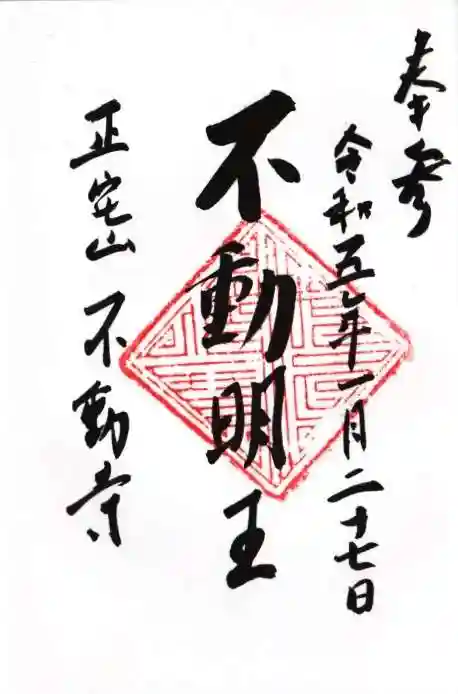 奉参
令和五年一月二十七日
不動明王
正山 不動寺